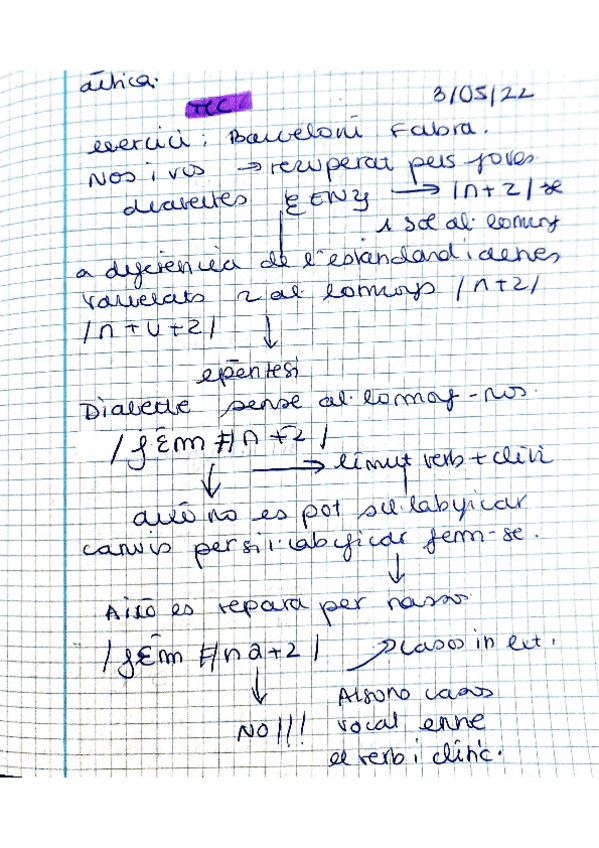 TCC
3/05/22
exercici: Barceloní Fabra.
Nos i vos → recuperat pels joves
→ /n+z/
1 sol al·lomorf
a diferència de l'estàndard i altres
2 al·lomorfs /n+z/
/n+u+z/ ↓
epèntesi
Dialecte sense al·lomorf -nos.
/fɛm#n+z/
→ límit verb + clític
↓
això no es pot sil·labificar
canvis per sil·labificar fem-se.
↓
Això es repara per
/fɛm#nə+z/
→ casos in
↓ Alguns casos
NO!!! vocal entre
el verb i clític.